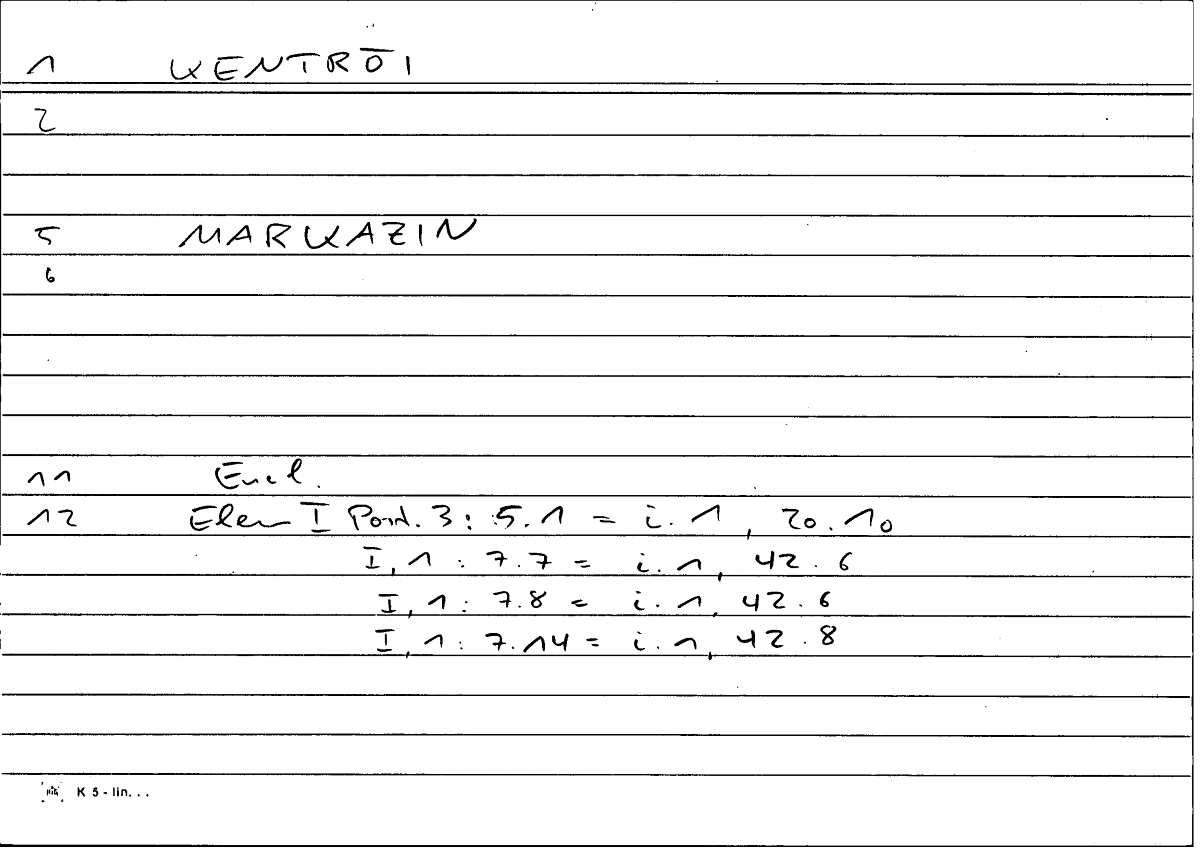 1 KENTRŌI
2
5 MARKAZIN
6
11 Eucl.
12 Elem I Post. 3: 5.1 = i.1, 20.10
I, 1: 7.7 = i.1, 42.6
I, 1: 7.8 = i.1, 42.6
I, 1: 7.14 = i.1, 42.8
K 5 - lin. . .